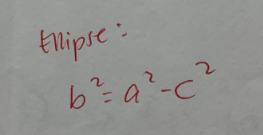 Ellipse:
b² = a² - c²